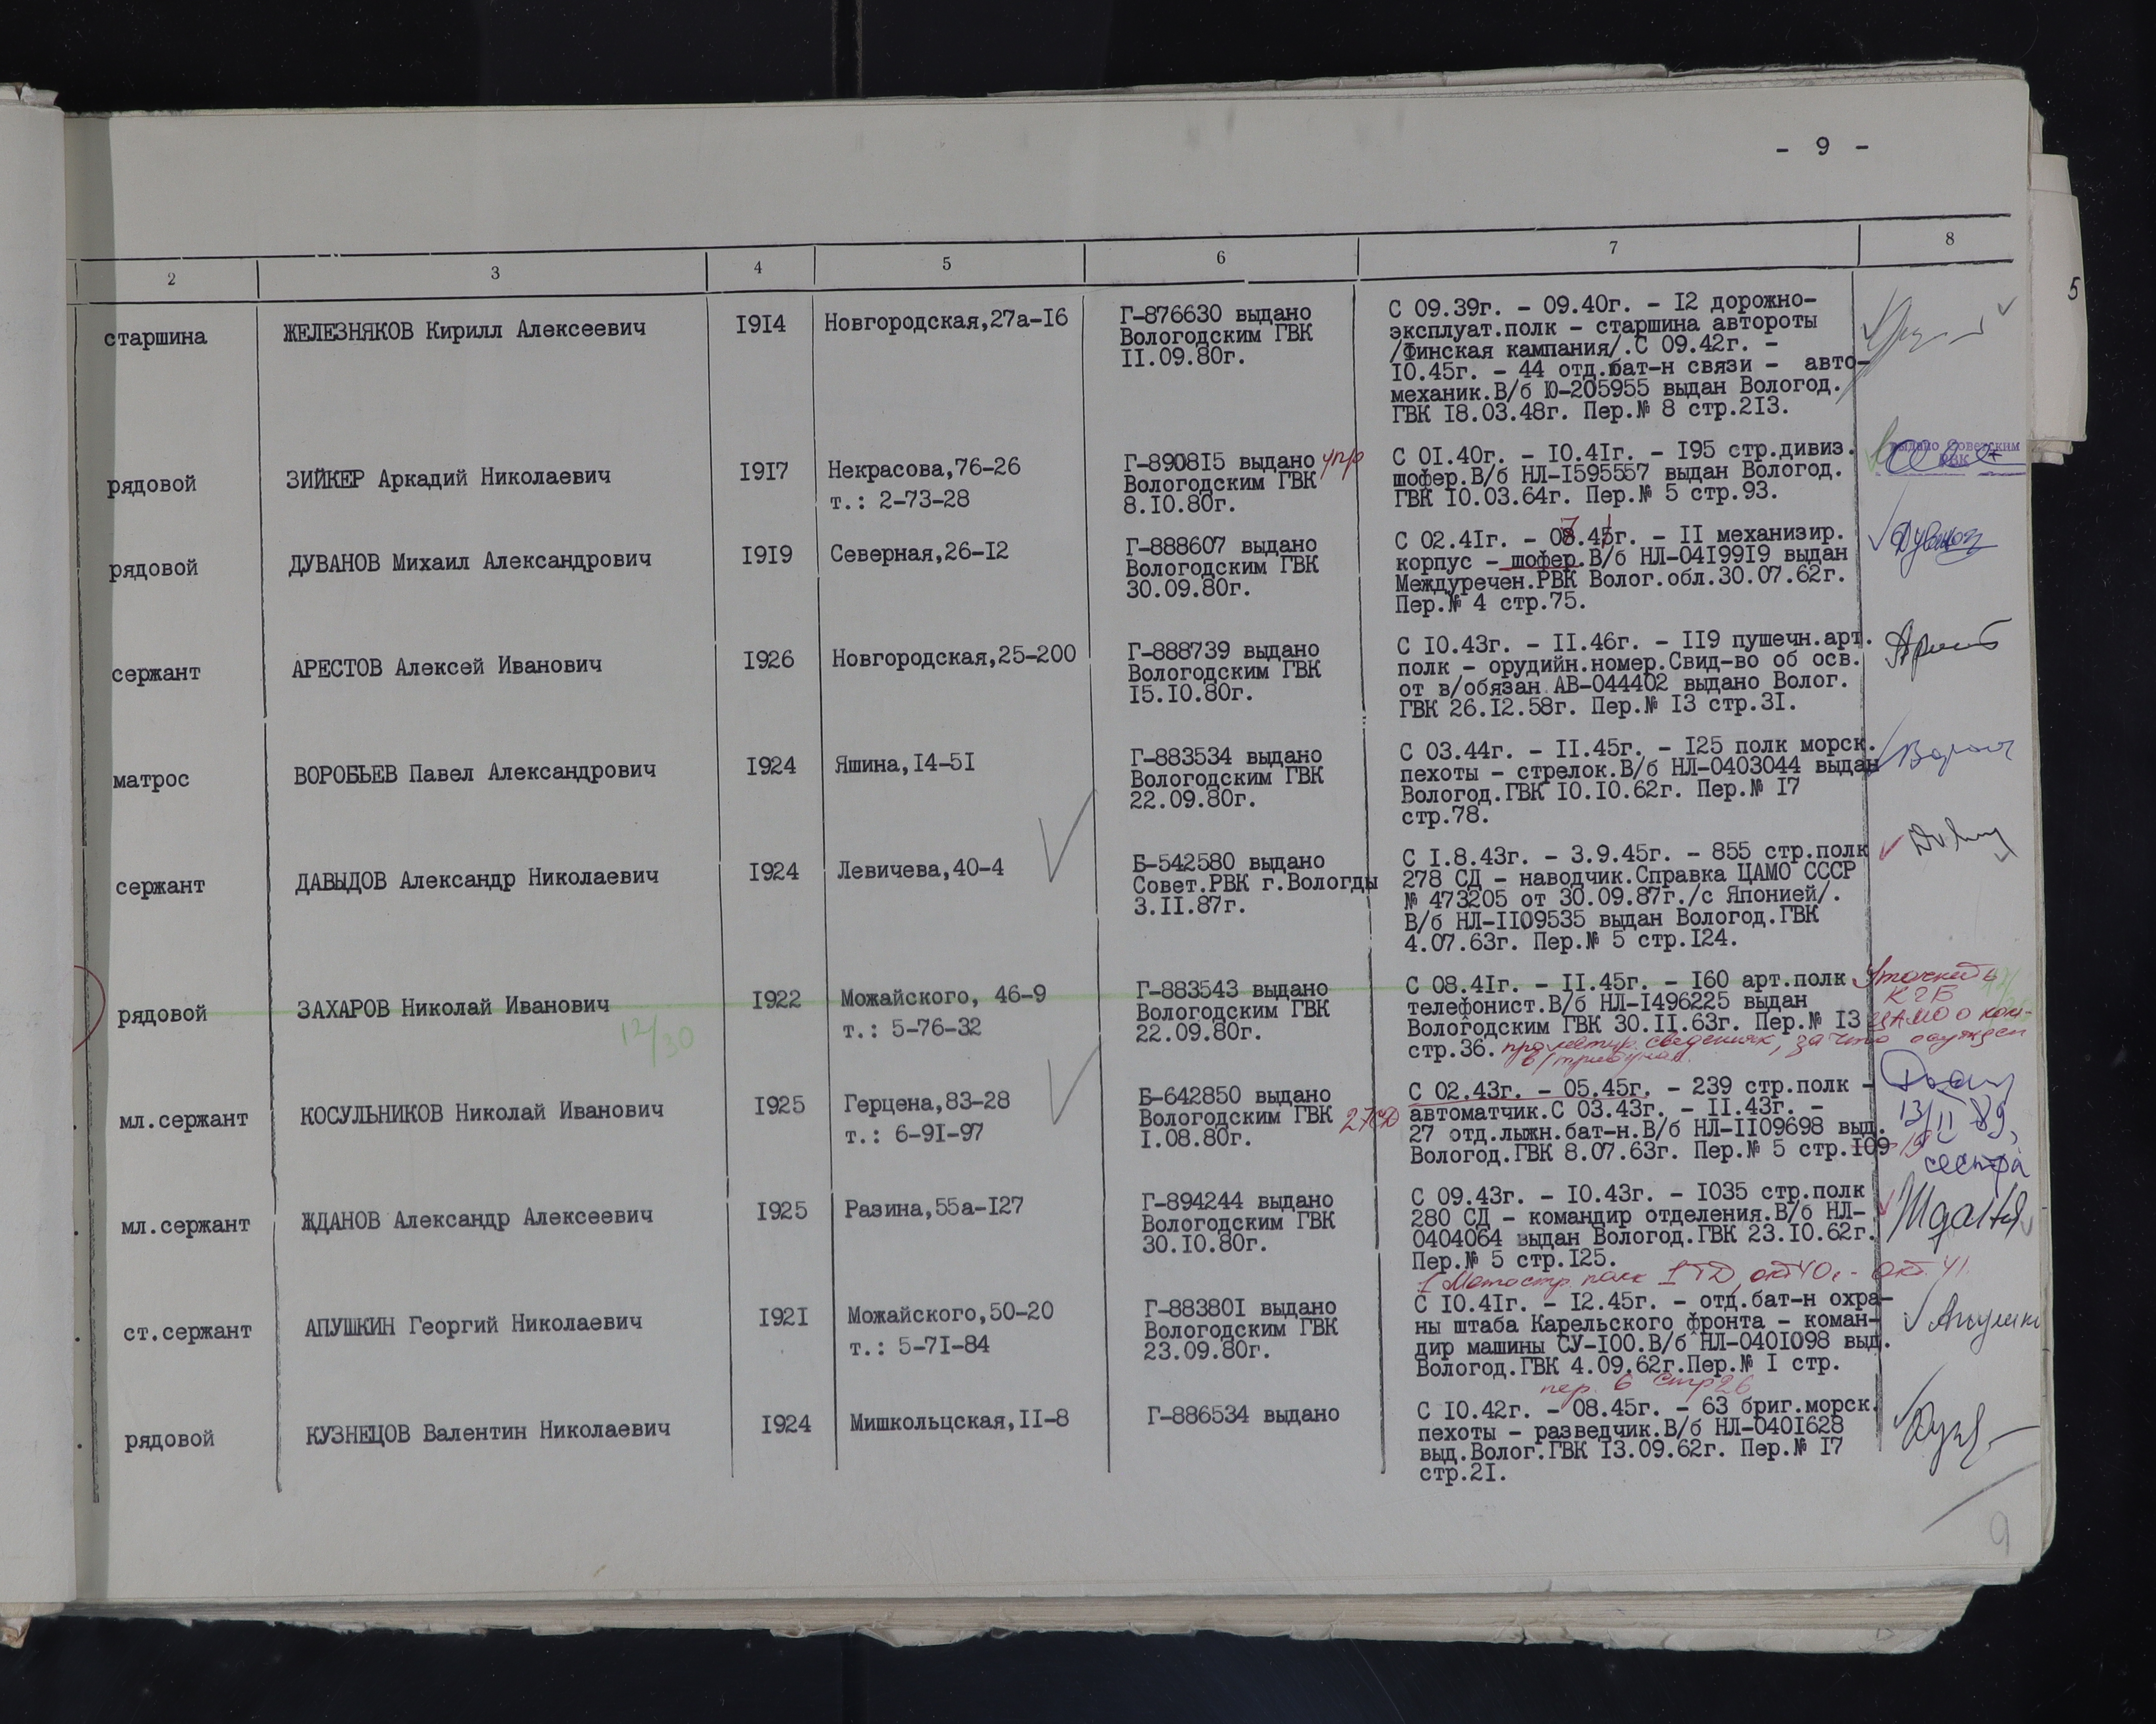 - 9 -
5
2 3 4 5 6 7 8
старшина ЖЕЛЕЗНЯКОВ Кирилл Алексеевич 1914 Новгородская,27а-16
Г-876630 выдано
Вологодским ГВК
11.09.80г.
С 09.39г. - 09.40г. - 12 дорожно-
эксплуат.полк - старшина автороты
/Финская кампания/.С 09.42г. -
10.45г. - 44 отд.бат-н связи - авто-
механик.В/б Ю-205955 выдан Вологод.
ГВК 18.03.48г. Пер.№ 8 стр.213.
рядовой ЗИЙКЕР Аркадий Николаевич 1917 Некрасова,76-26
т.: 2-73-28
Г-890815 выдано
Вологодским ГВК
8.10.80г.
С 01.40г. - 10.41г. - 195 стр.дивиз.
шофер.В/б НЛ-1595557 выдан Вологод.
ГВК 10.03.64г. Пер.№ 5 стр.93.
выдано Советским
РВК
рядовой ДУВАНОВ Михаил Александрович 1919 Северная,26-12
Г-888607 выдано
Вологодским ГВК
30.09.80г.
С 02.41г. - 08.45г. - 11 механизир.
корпус - шофер.В/б НЛ-0419919 выдан
Междуречен.РВК Волог.обл.30.07.62г.
Пер.№ 4 стр.75.
сержант АРЕСТОВ Алексей Иванович 1926 Новгородская,25-200
Г-888739 выдано
Вологодским ГВК
15.10.80г.
С 10.43г. - 11.46г. - 119 пушечн.арт.
полк - орудийн.номер.Свид-во об осв.
от в/обязан АВ-044402 выдано Волог.
ГВК 26.12.58г. Пер.№ 13 стр.31.
матрос ВОРОБЬЕВ Павел Александрович 1924 Яшина,14-51
Г-883534 выдано
Вологодским ГВК
22.09.80г.
С 03.44г. - 11.45г. - 125 полк морск.
пехоты - стрелок.В/б НЛ-0403044 выдан
Вологод.ГВК 10.10.62г. Пер.№ 17
стр.78.
сержант ДАВЫДОВ Александр Николаевич 1924 Левичева,40-4
Б-542580 выдано
Совет.РВК г.Вологды
3.11.87г.
С 1.8.43г. - 3.9.45г. - 855 стр.полк
278 СД - наводчик.Справка ЦАМО СССР
№ 473205 от 30.09.87г./с Японией/.
В/б НЛ-1109535 выдан Вологод.ГВК
4.07.63г. Пер.№ 5 стр.124.
рядовой ЗАХАРОВ Николай Иванович 1922 Можайского, 46-9
т.: 5-76-32
12/30
Г-883543 выдано
Вологодским ГВК
22.09.80г.
С 08.41г. - 11.45г. - 160 арт.полк
телефонист.В/б НЛ-1496225 выдан
Вологодским ГВК 30.11.63г. Пер.№ 13
стр.36.
Уточнить
КГБ
ЦАМО о ком-
прометир. сведениях, за что осужден
в/трибунал.
мл.сержант КОСУЛЬНИКОВ Николай Иванович 1925 Герцена,83-28
т.: 6-91-97
Б-642850 выдано
Вологодским ГВК
1.08.80г.
27СД
С 02.43г. - 05.45г. - 239 стр.полк -
автоматчик.С 03.43г. - 11.43г. -
27 отд.лыжн.бат-н.В/б НЛ-1109698 выд.
Вологод.ГВК 8.07.63г. Пер.№ 5 стр.109
13/II 89,
сестра
мл.сержант ЖДАНОВ Александр Алексеевич 1925 Разина,55а-127
Г-894244 выдано
Вологодским ГВК
30.10.80г.
С 09.43г. - 10.43г. - 1035 стр.полк
280 СД - командир отделения.В/б НЛ-
0404064 выдан Вологод.ГВК 23.10.62г.
Пер.№ 5 стр.125.
1 Мотостр. полк 1 ТД, окт 40г. - окт. 41
ст.сержант АПУШКИН Георгий Николаевич 1921 Можайского,50-20
т.: 5-71-84
Г-883801 выдано
Вологодским ГВК
23.09.80г.
С 10.41г. - 12.45г. - отд.бат-н охра-
ны штаба Карельского фронта - коман-
дир машины СУ-100.В/б НЛ-0401098 выд.
Вологод.ГВК 4.09.62г.Пер.№ 1 стр.
пер. 6 стр 26
рядовой КУЗНЕЦОВ Валентин Николаевич 1924 Мишкольцская,11-8
Г-886534 выдано
С 10.42г. - 08.45г. - 63 бриг.морск.
пехоты - разведчик.В/б НЛ-0401628
выд.Волог.ГВК 13.09.62г. Пер.№ 17
стр.21.
9